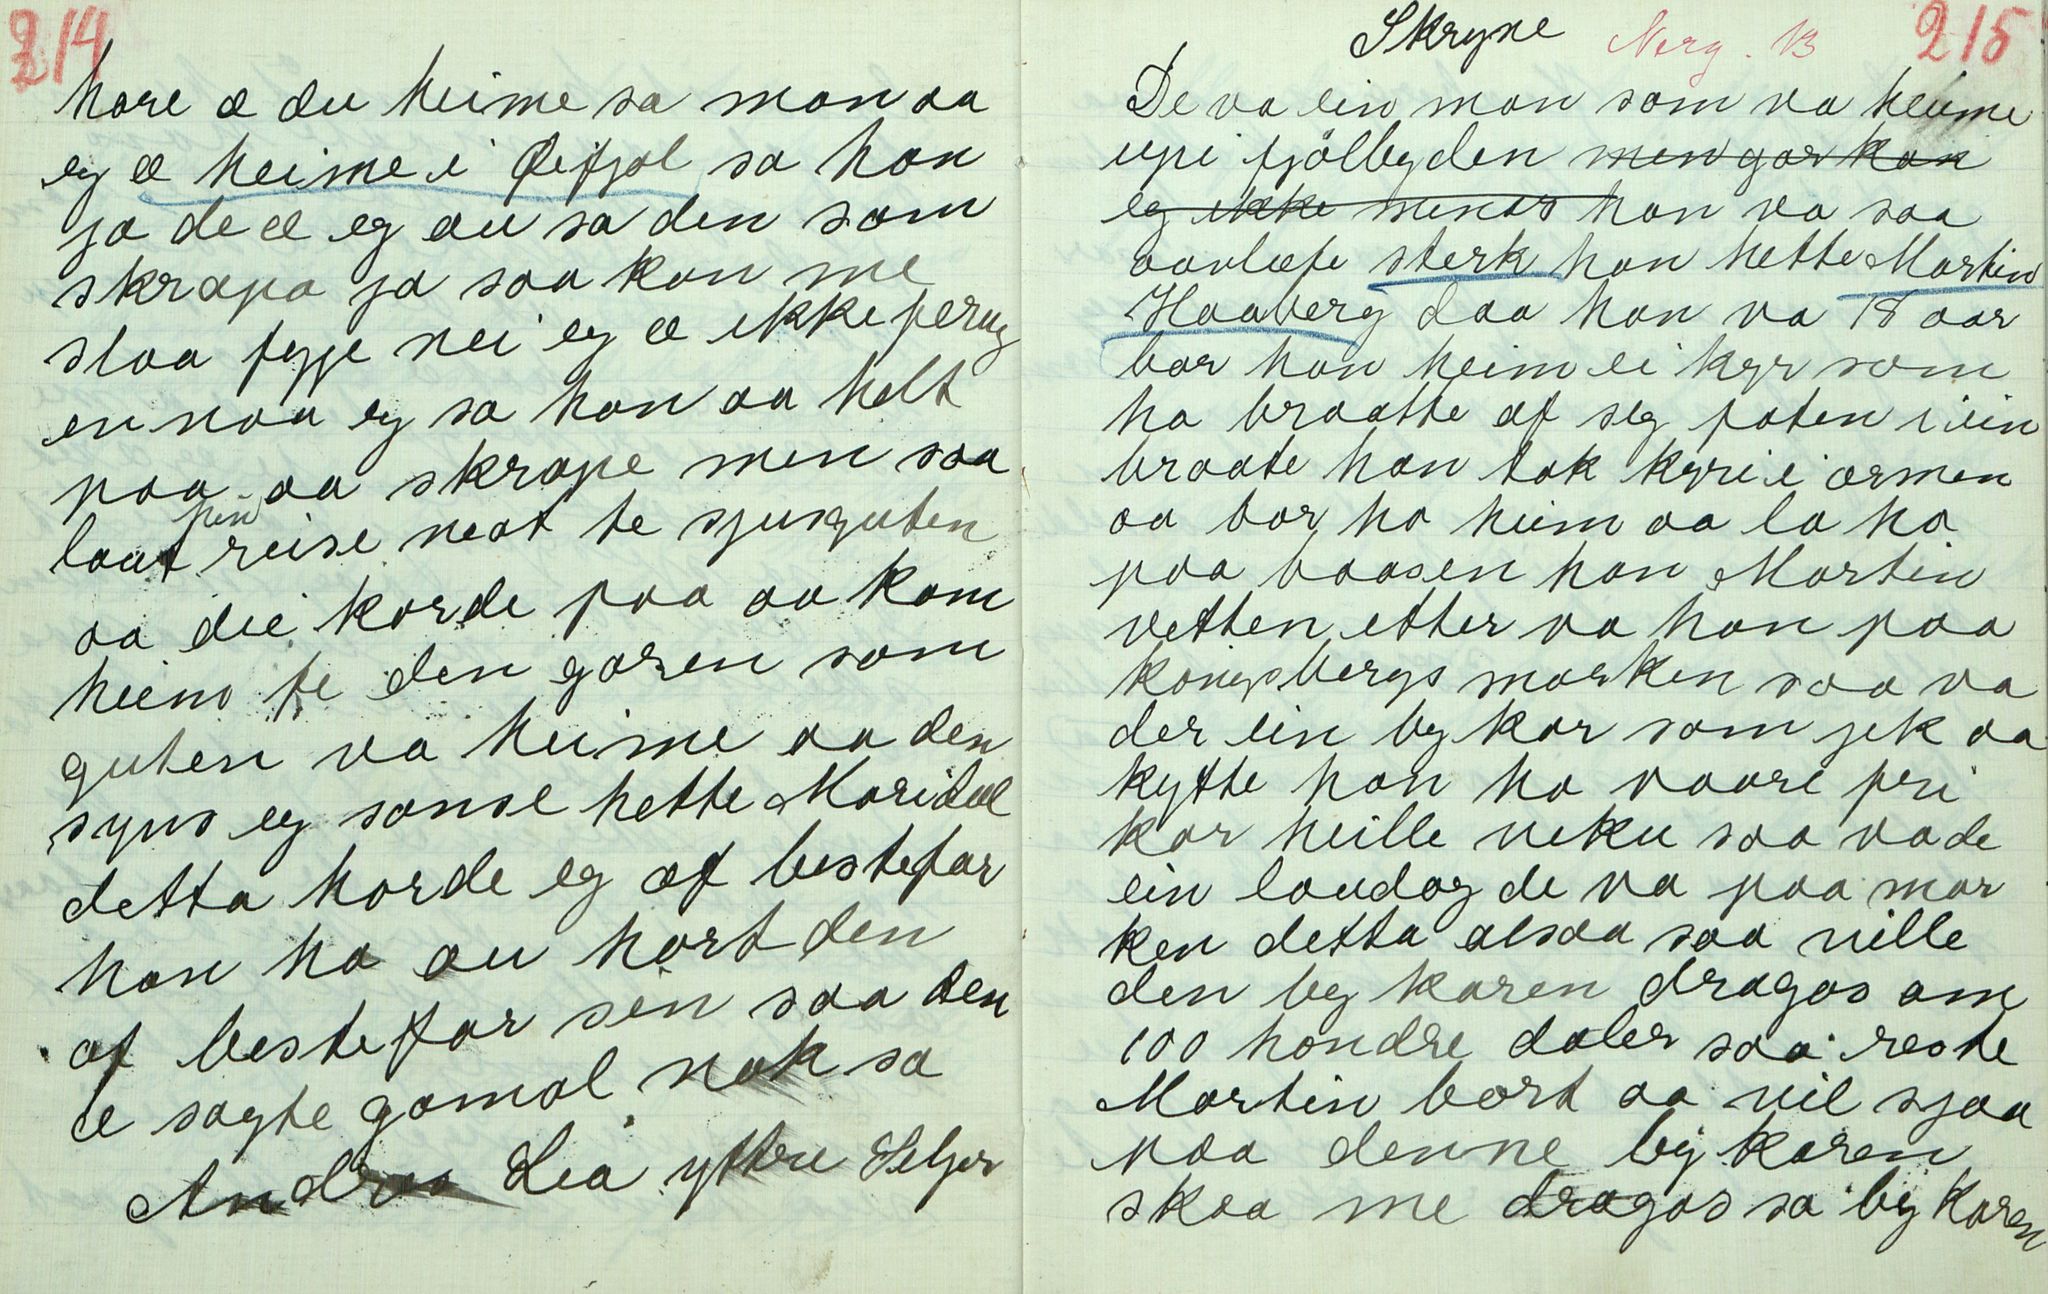 214
hore æ du heime sa mon aa
eg æ heime i Øifjol sa han
ja de æ eg au sa den som
skrapa ja saa kan me
slaa fygje nei eg æ ikke ferug
en noa eg sa han aa helt
paa aa skrape men saa
laut fen reise neat te sjusguten
aa dei korde paa aa kom
heim te den garen som
guten va heime aa den
syns eg sonse hette Maridal
detta horde eg af bestefar
han ha au hort den
af bestefar sin saa den
æ sagte gamal nok sa
Andres Lia yttre Seljor
Skryne Norg. 13 215
De va ein man som va heime
upi fjölbyden men gar kan
eg ikke minas han va saa
aavlefe sterk han hette Martin
Haaberg daa han va 18 aar
bar han heim ei kyr som
ha braatte af seg foten i ein
braate han tok kyri i armen
aa bar ho heim aa la ho
paa baasen han Martin
vetten etter va han paa
kongsbergs marken saa va
der ein by kar som jek aa
kytte han ha vaare fri
kar heille veku saa va de
ein laudag de va paa mar
ken detta alsaa saa ville
den by karen dragas om
100 hondre daler saa reste
Martin bort aa vil sjaa
paa denne by karen
skaa me dragas sa by karen